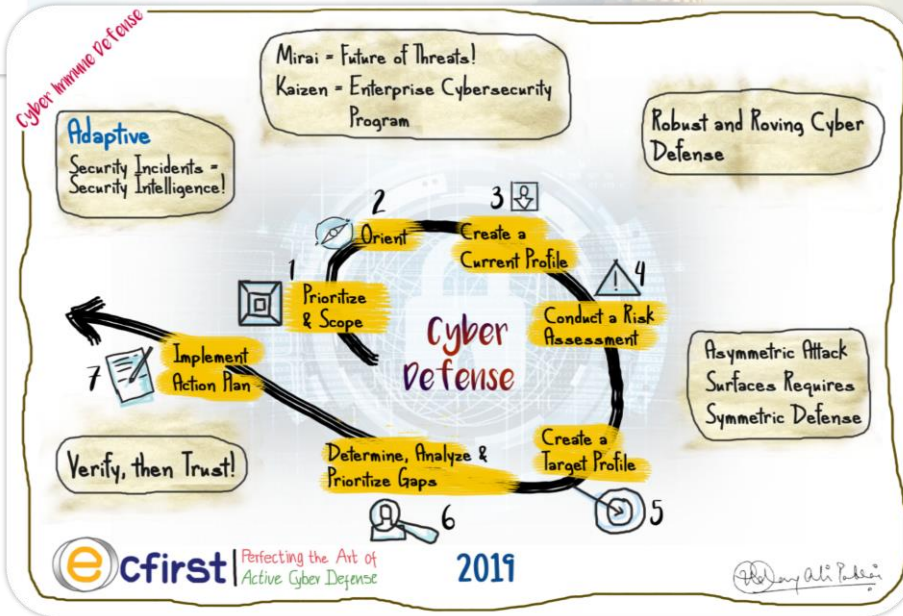 Cyber Immune Defense
Mirai = Future of Threats!
Kaizen = Enterprise Cybersecurity
Program
Adaptive
Security Incidents =
Security Intelligence!
Robust and Roving Cyber
Defense
1
Prioritize
& Scope
2
Orient
3
Create a
Current Profile
4
Conduct a Risk
Assessment
Cyber
Defense
Asymmetric Attack
Surfaces Requires
Symmetric Defense
5
Create a
Target Profile
6
Determine, Analyze &
Prioritize Gaps
7
Implement
Action Plan
Verify, then Trust!
ecfirst
Perfecting the Art of
Active Cyber Defense
2019